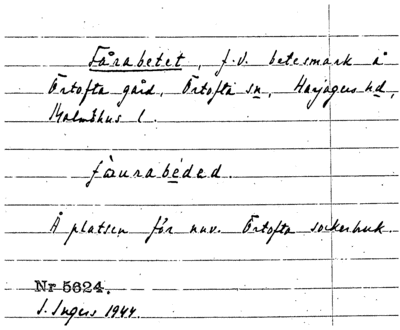 Fårabetet, f.v. betesmark å
Örtofta gård, Örtofta sn, Harjagers hd,
Malmöhus l.
fàurabéded.
Å platsen för nuv. Örtofta sockerbruk.
Nr 5624.
S. Ingers 1944.